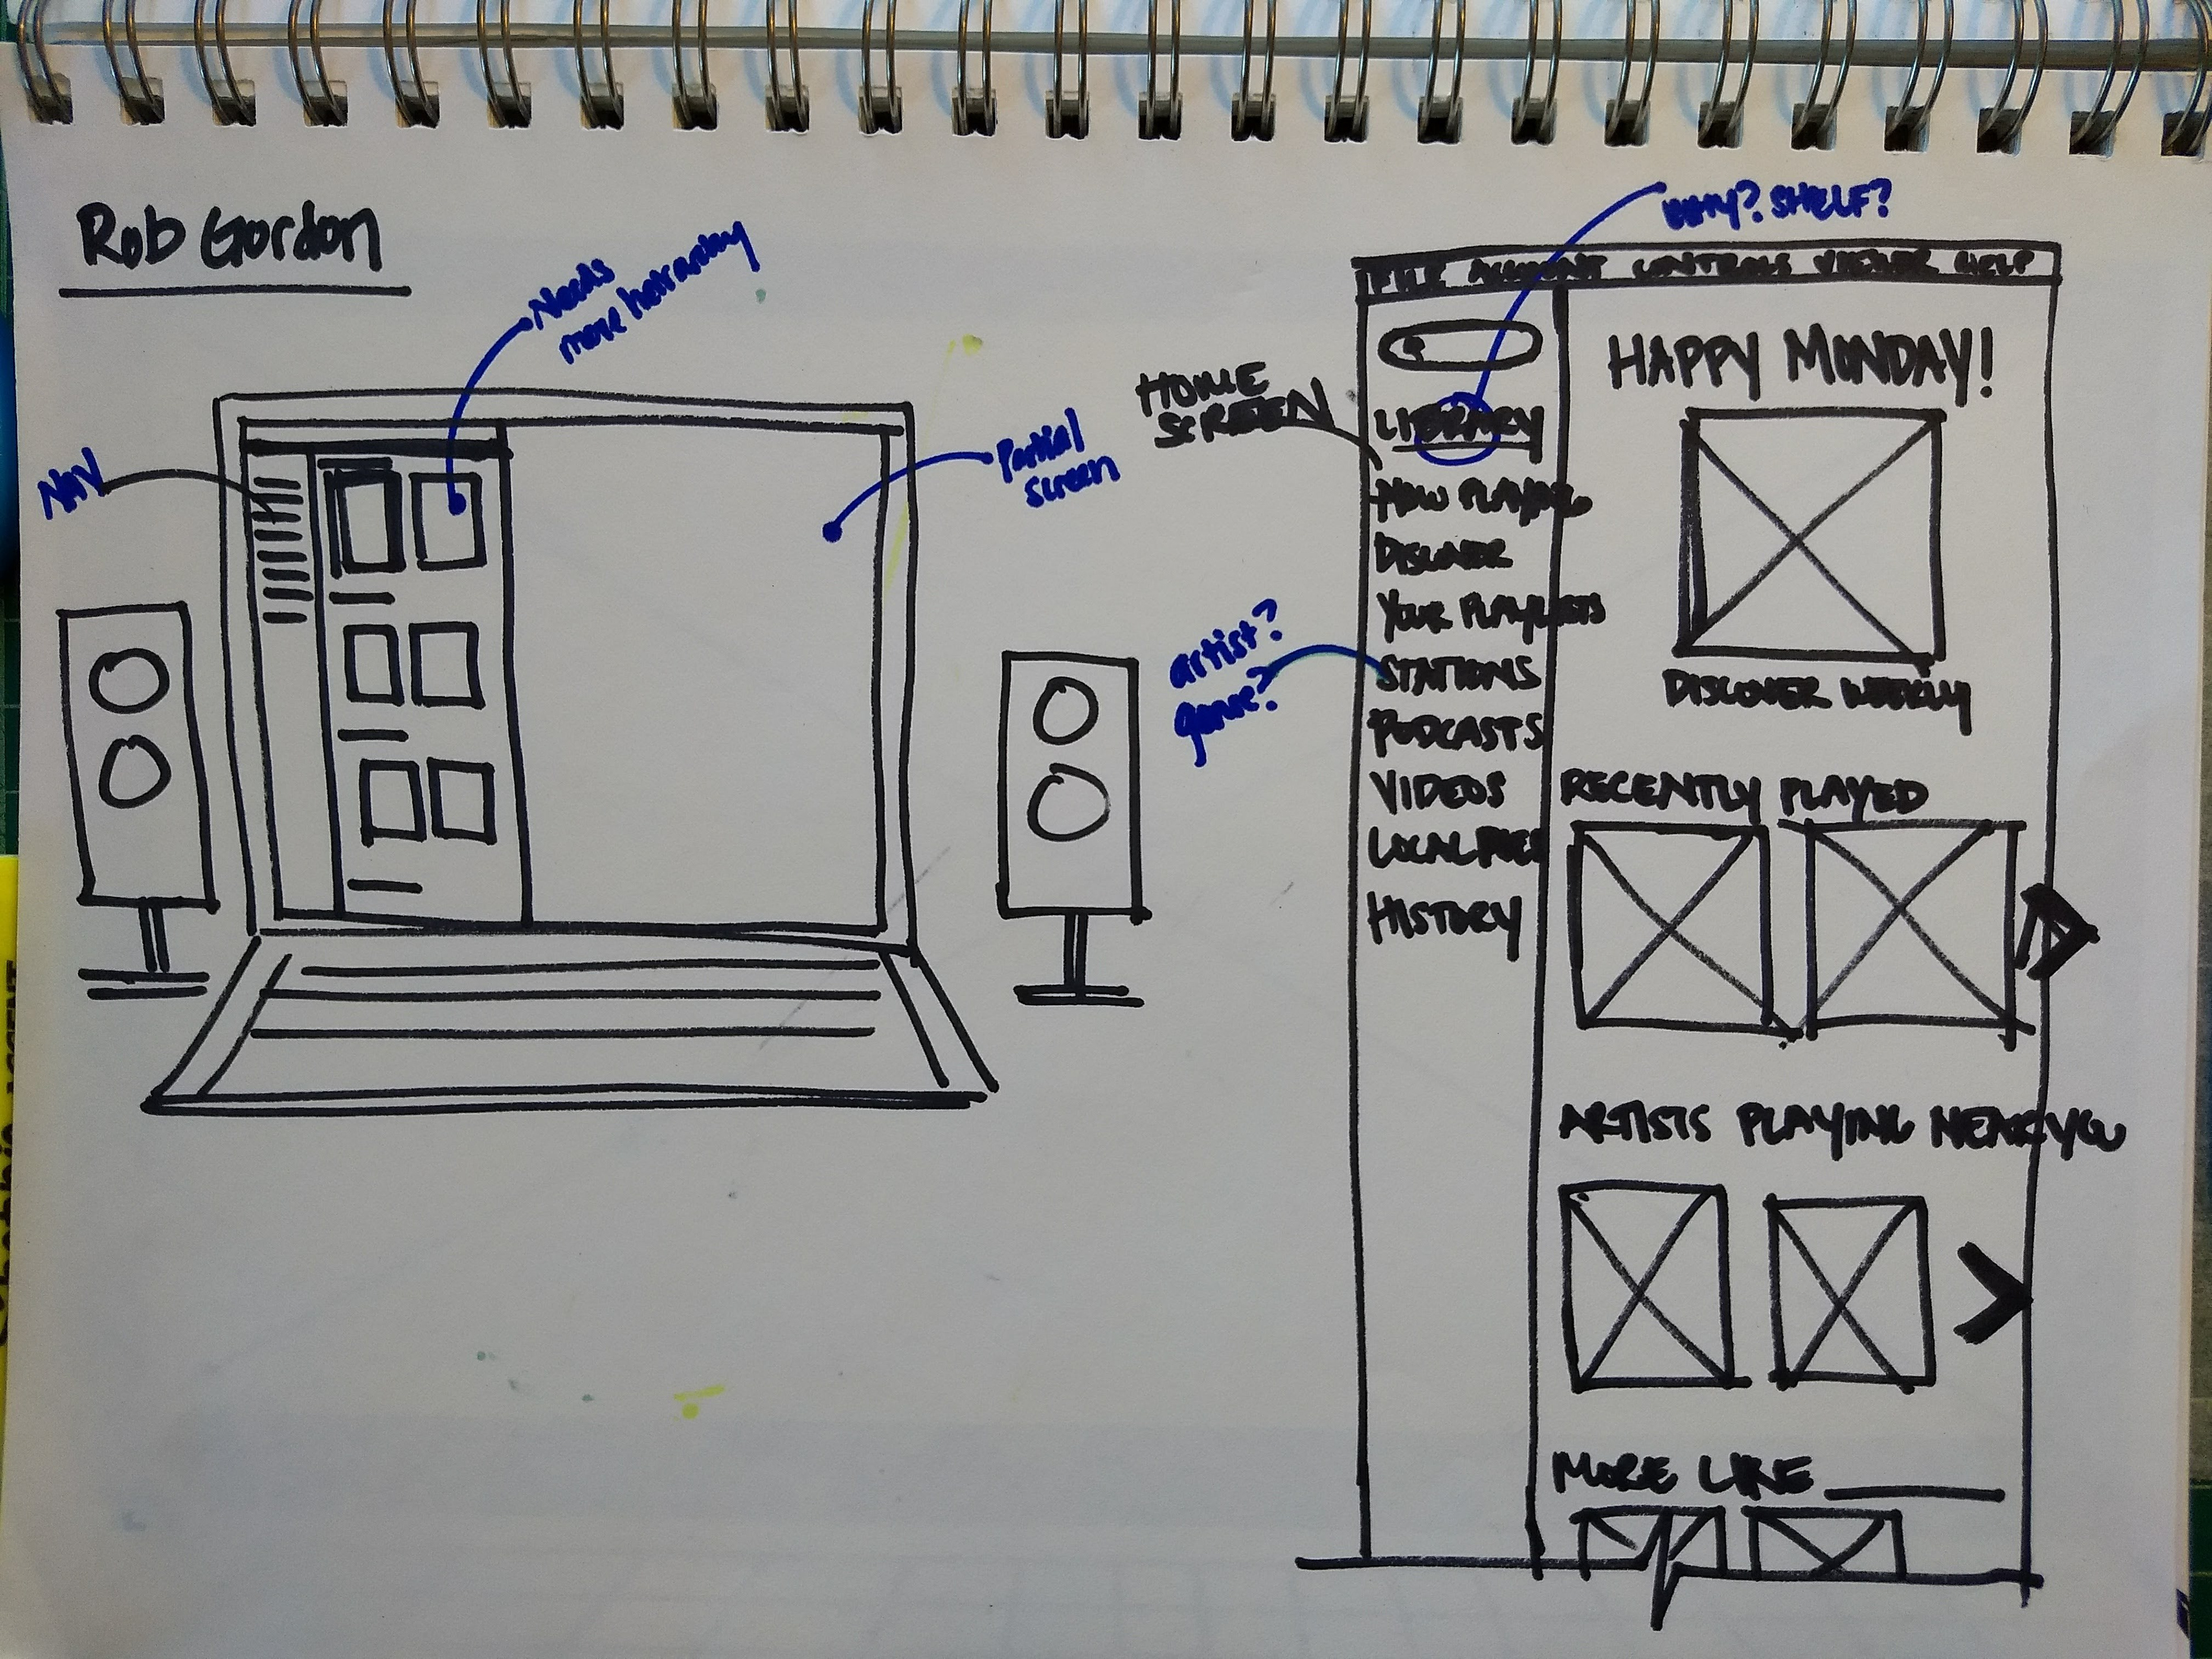 Rob Gordon
Needs
more heirarchy
Nav
Partial
screen
WHY? SHELF?
FILE ACCOUNT CONTROLS VIEWER HELP
HOME
SCREEN
LIBRARY
NOW PLAYING
DISCOVER
YOUR PLAYLISTS
artist?
genre?
STATIONS
PODCASTS
VIDEOS
LOCAL FILES
HISTORY
HAPPY MONDAY!
DISCOVER WEEKLY
RECENTLY PLAYED
ARTISTS PLAYING NEAR YOU
MORE LIKE
ACCENT